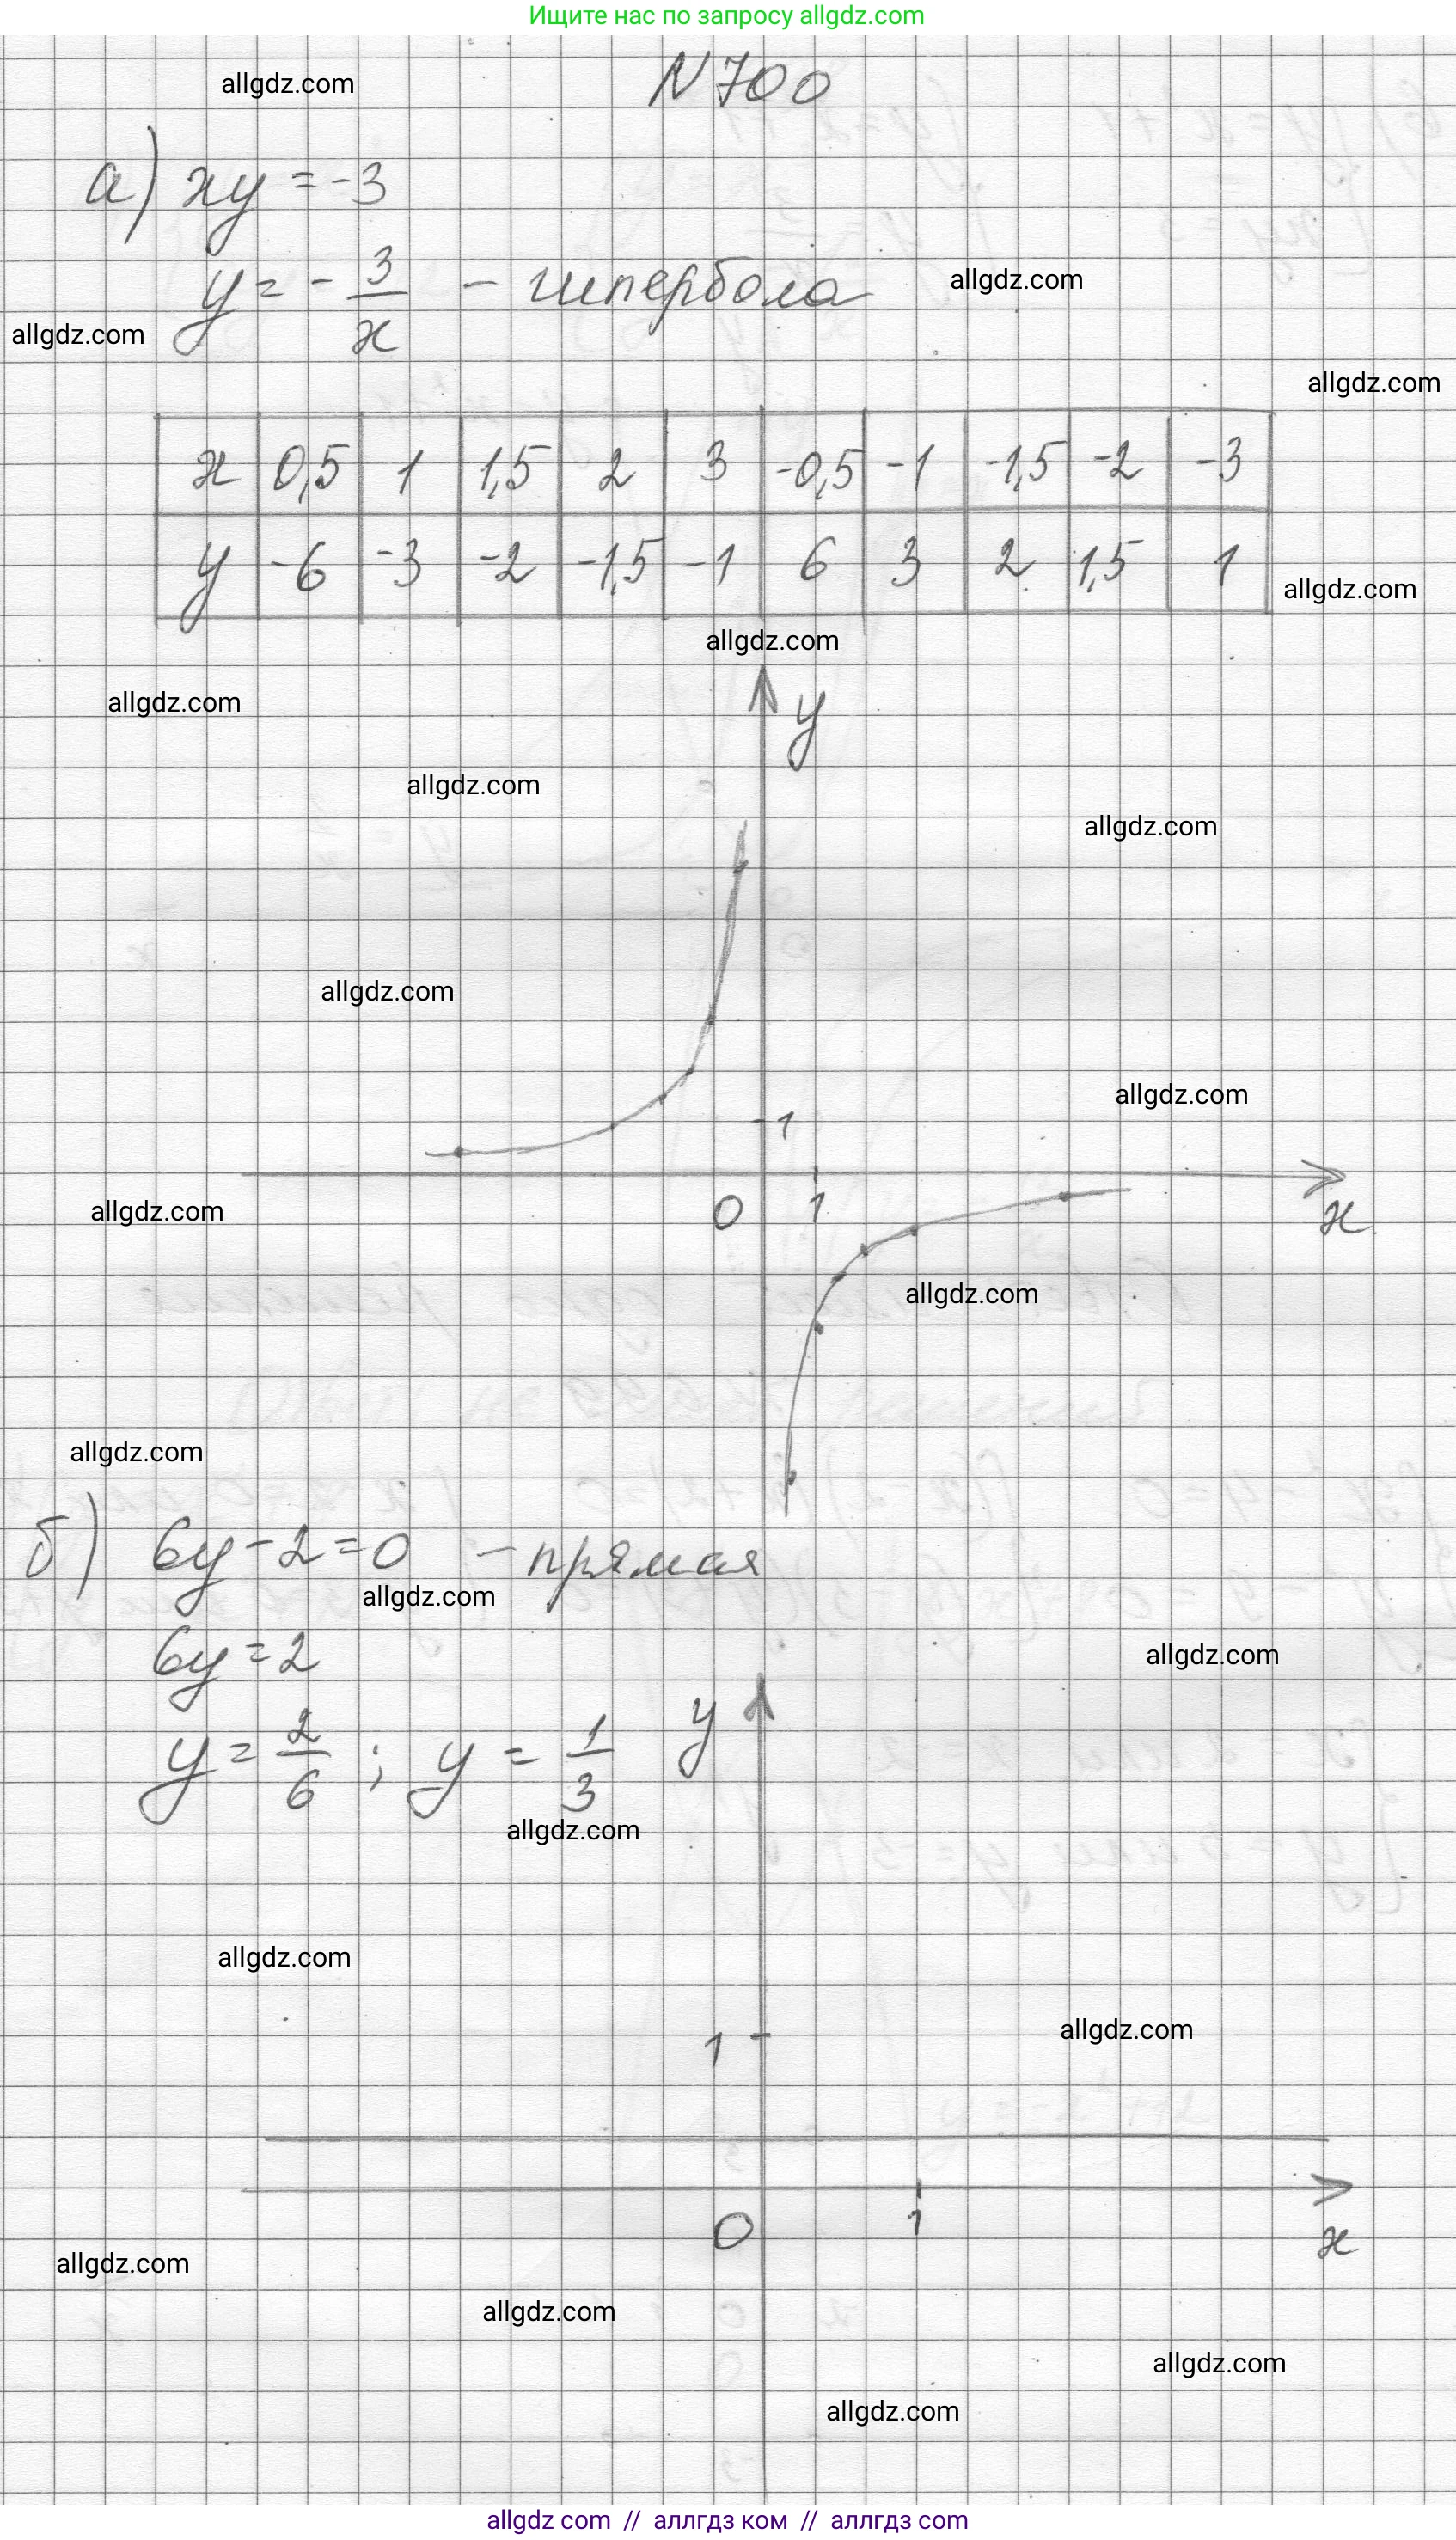 Ищите нас по запросу allgdz.com
allgdz.com
N 700
а) xy = -3
y = - 3/x - гипербола
allgdz.com
allgdz.com
allgdz.com
x 0,5 1 1,5 2 3 -0,5 -1 -1,5 -2 -3
y -6 -3 -2 -1,5 -1 6 3 2 1,5 1
allgdz.com
allgdz.com
allgdz.com
y
allgdz.com
allgdz.com
allgdz.com
allgdz.com
1
allgdz.com
0 1 x
allgdz.com
allgdz.com
б) 6y - 2 = 0 - прямая
allgdz.com
6y = 2
allgdz.com
y = 2/6 ; y = 1/3
y
allgdz.com
allgdz.com
allgdz.com
1
0 1 x
allgdz.com
allgdz.com
allgdz.com
allgdz.com
allgdz com // аллгдз ком // аллгдз com